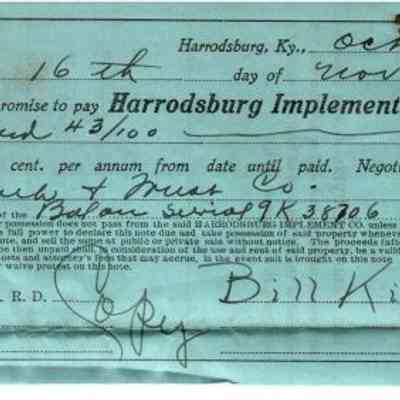 Harrodsburg, Ky., Oct
16th day of Nov
promise to pay Harrodsburg Implement
and 43/100
cent. per annum from date until paid. Negot
& Trust Co.
of the serial 9K 38706
possession does not pass from the said HARRODSBURG IMPLEMENT CO. unless
full power to declare this note due and take possession of said property whenever
note, and sell the same at public or private sale without notice. The proceeds (afte
be then unpaid shall, in consideration of the use and rent of said property, be a valid
costs and attorney's fees that may accrue, in the event suit is brought on this note
waive protest on this note.
R. D. Copy Bill Ki